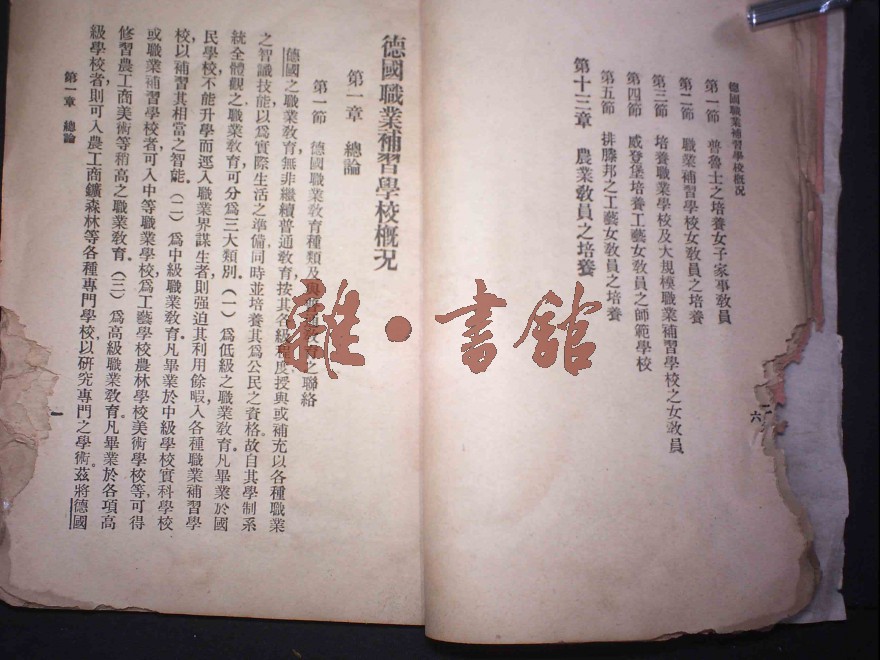 德國職業補習學校概況
第一節　普魯士之培養女子家事教員
第二節　職業補習學校女教員之培養
第三節　培養職業學校及大規模職業補習學校之女教員
第四節　威登堡培養工藝女教員之師範學校
第五節　排滕邦之工藝女教員之培養
第十三章　農業教員之培養
六
德國職業補習學校概況
第一章　總論
第一節　德國職業教育種類及與普通教育之聯絡
德國之職業教育無非繼續普通教育按其各級程度授與或補充以各種職業
之智識技能以爲實際生活之準備同時並培養其爲公民之資格故自其學制系
統全體觀之職業教育可分爲三大類別（一）爲低級之職業教育凡畢業於國
民學校不能升學而逕入職業界謀生者則强迫其利用餘暇入各種職業補習學
校以補習其相當之智能。（二）爲中級職業教育凡畢業於中級學校實科學校
或職業補習學校者可入中等職業學校爲工藝學校農林學校美術學校等可得
修習農工商美術等稍高之職業教育。（三）爲高級職業教育。凡畢業於各項高
級學校者則可入農工商鑛森林等各種專門學校以研究專門之學術。茲將德國
第一章　總論
一
雜·書館